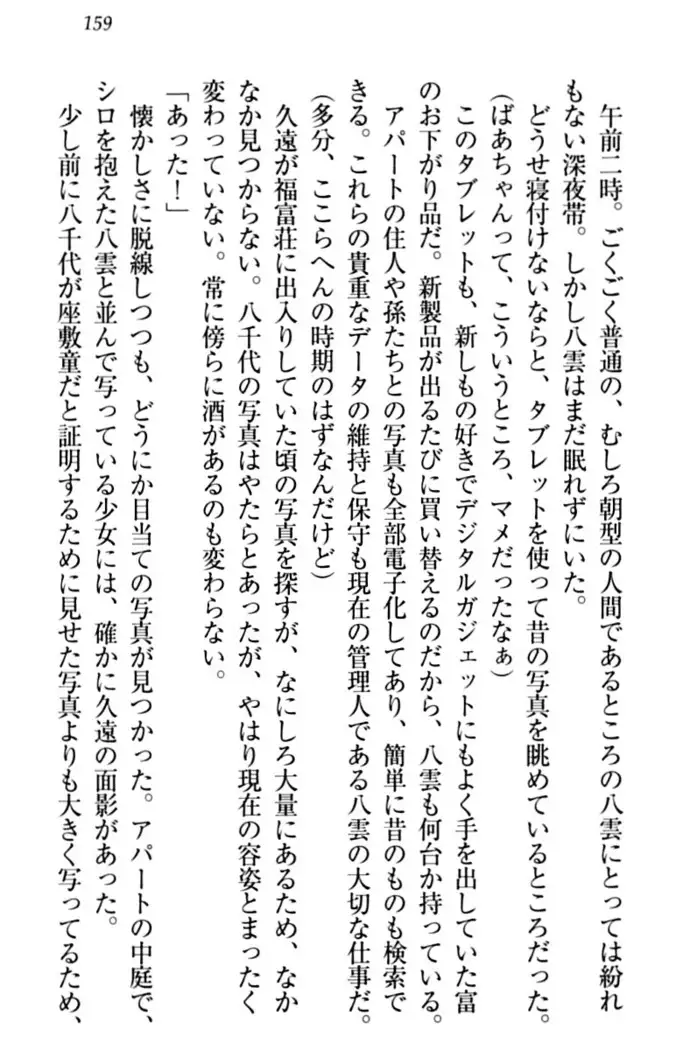 159
午前二時。ごくごく普通の、むしろ朝型の人間であるところの八雲にとっては紛れ
もない深夜帯。しかし八雲はまだ眠れずにいた。
どうせ寝付けないならと、タブレットを使って昔の写真を眺めているところだった。
(ばあちゃんって、こういうところ、マメだったなぁ)
このタブレットも、新しもの好きでデジタルガジェットにもよく手を出していた富
のお下がり品だ。新製品が出るたびに買い替えるのだから、八雲も何台か持っている。
アパートの住人や孫たちとの写真も全部電子化してあり、簡単に昔のものも検索で
きる。これらの貴重なデータの維持と保守も現在の管理人である八雲の大切な仕事だ。
(多分、ここらへんの時期のはずなんだけど)
久遠が福富荘に出入りしていた頃の写真を探すが、なにしろ大量にあるため、なか
なか見つからない。八千代の写真はやたらとあったが、やはり現在の容姿とまったく
変わっていない。常に傍らに酒があるのも変わらない。
「あった！」
懐かしさに脱線しつつも、どうにか目当ての写真が見つかった。アパートの中庭で、
シロを抱えた八雲と並んで写っている少女には、確かに久遠の面影があった。
少し前に八千代が座敷童だと証明するために見せた写真よりも大きく写ってるため、